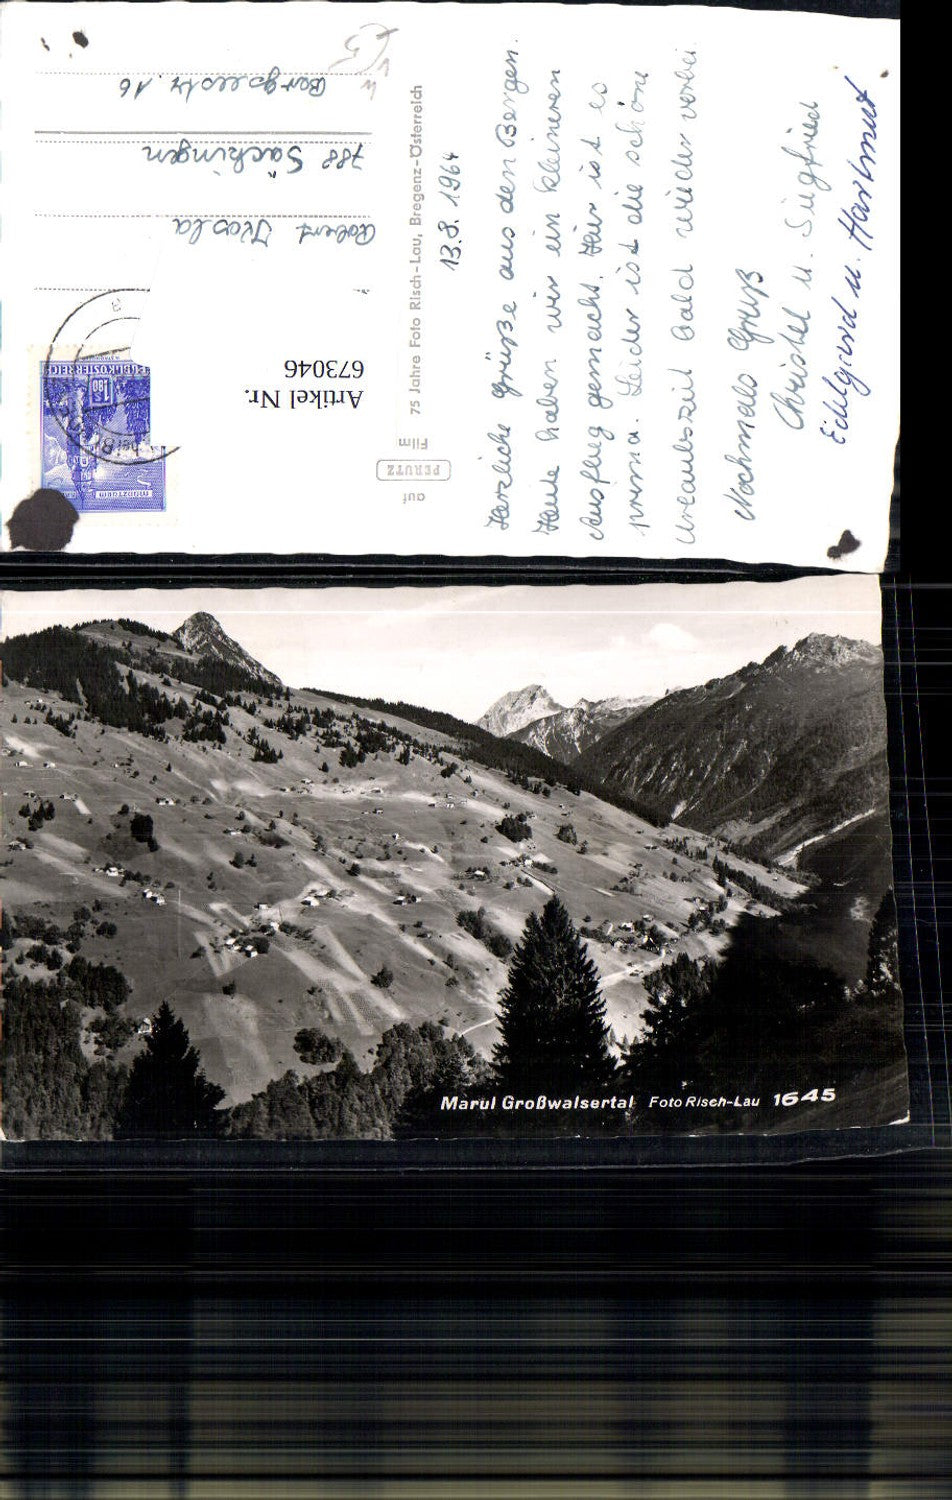 13.8.1964
Herzliche Grüße aus den Bergen.
Heute haben wir ein kleineren
Ausflug gemacht. Hier ist es
prima. Leider ist die schöne
Urlaubszeit bald wieder vorbei.
Nochmals Gruß
Christel u. Siegfried
Edelgard u. Hartmut
75 Jahre Foto Risch-Lau, Bregenz-Österreich
auf
PERUTZ
Film
Artikel Nr.
673046
REPUBLIK ÖSTERREICH
1.80
Münzturm
Robert
788 Säckingen
Bergseestr. 16
Marul Großwalsertal Foto Risch-Lau 1645